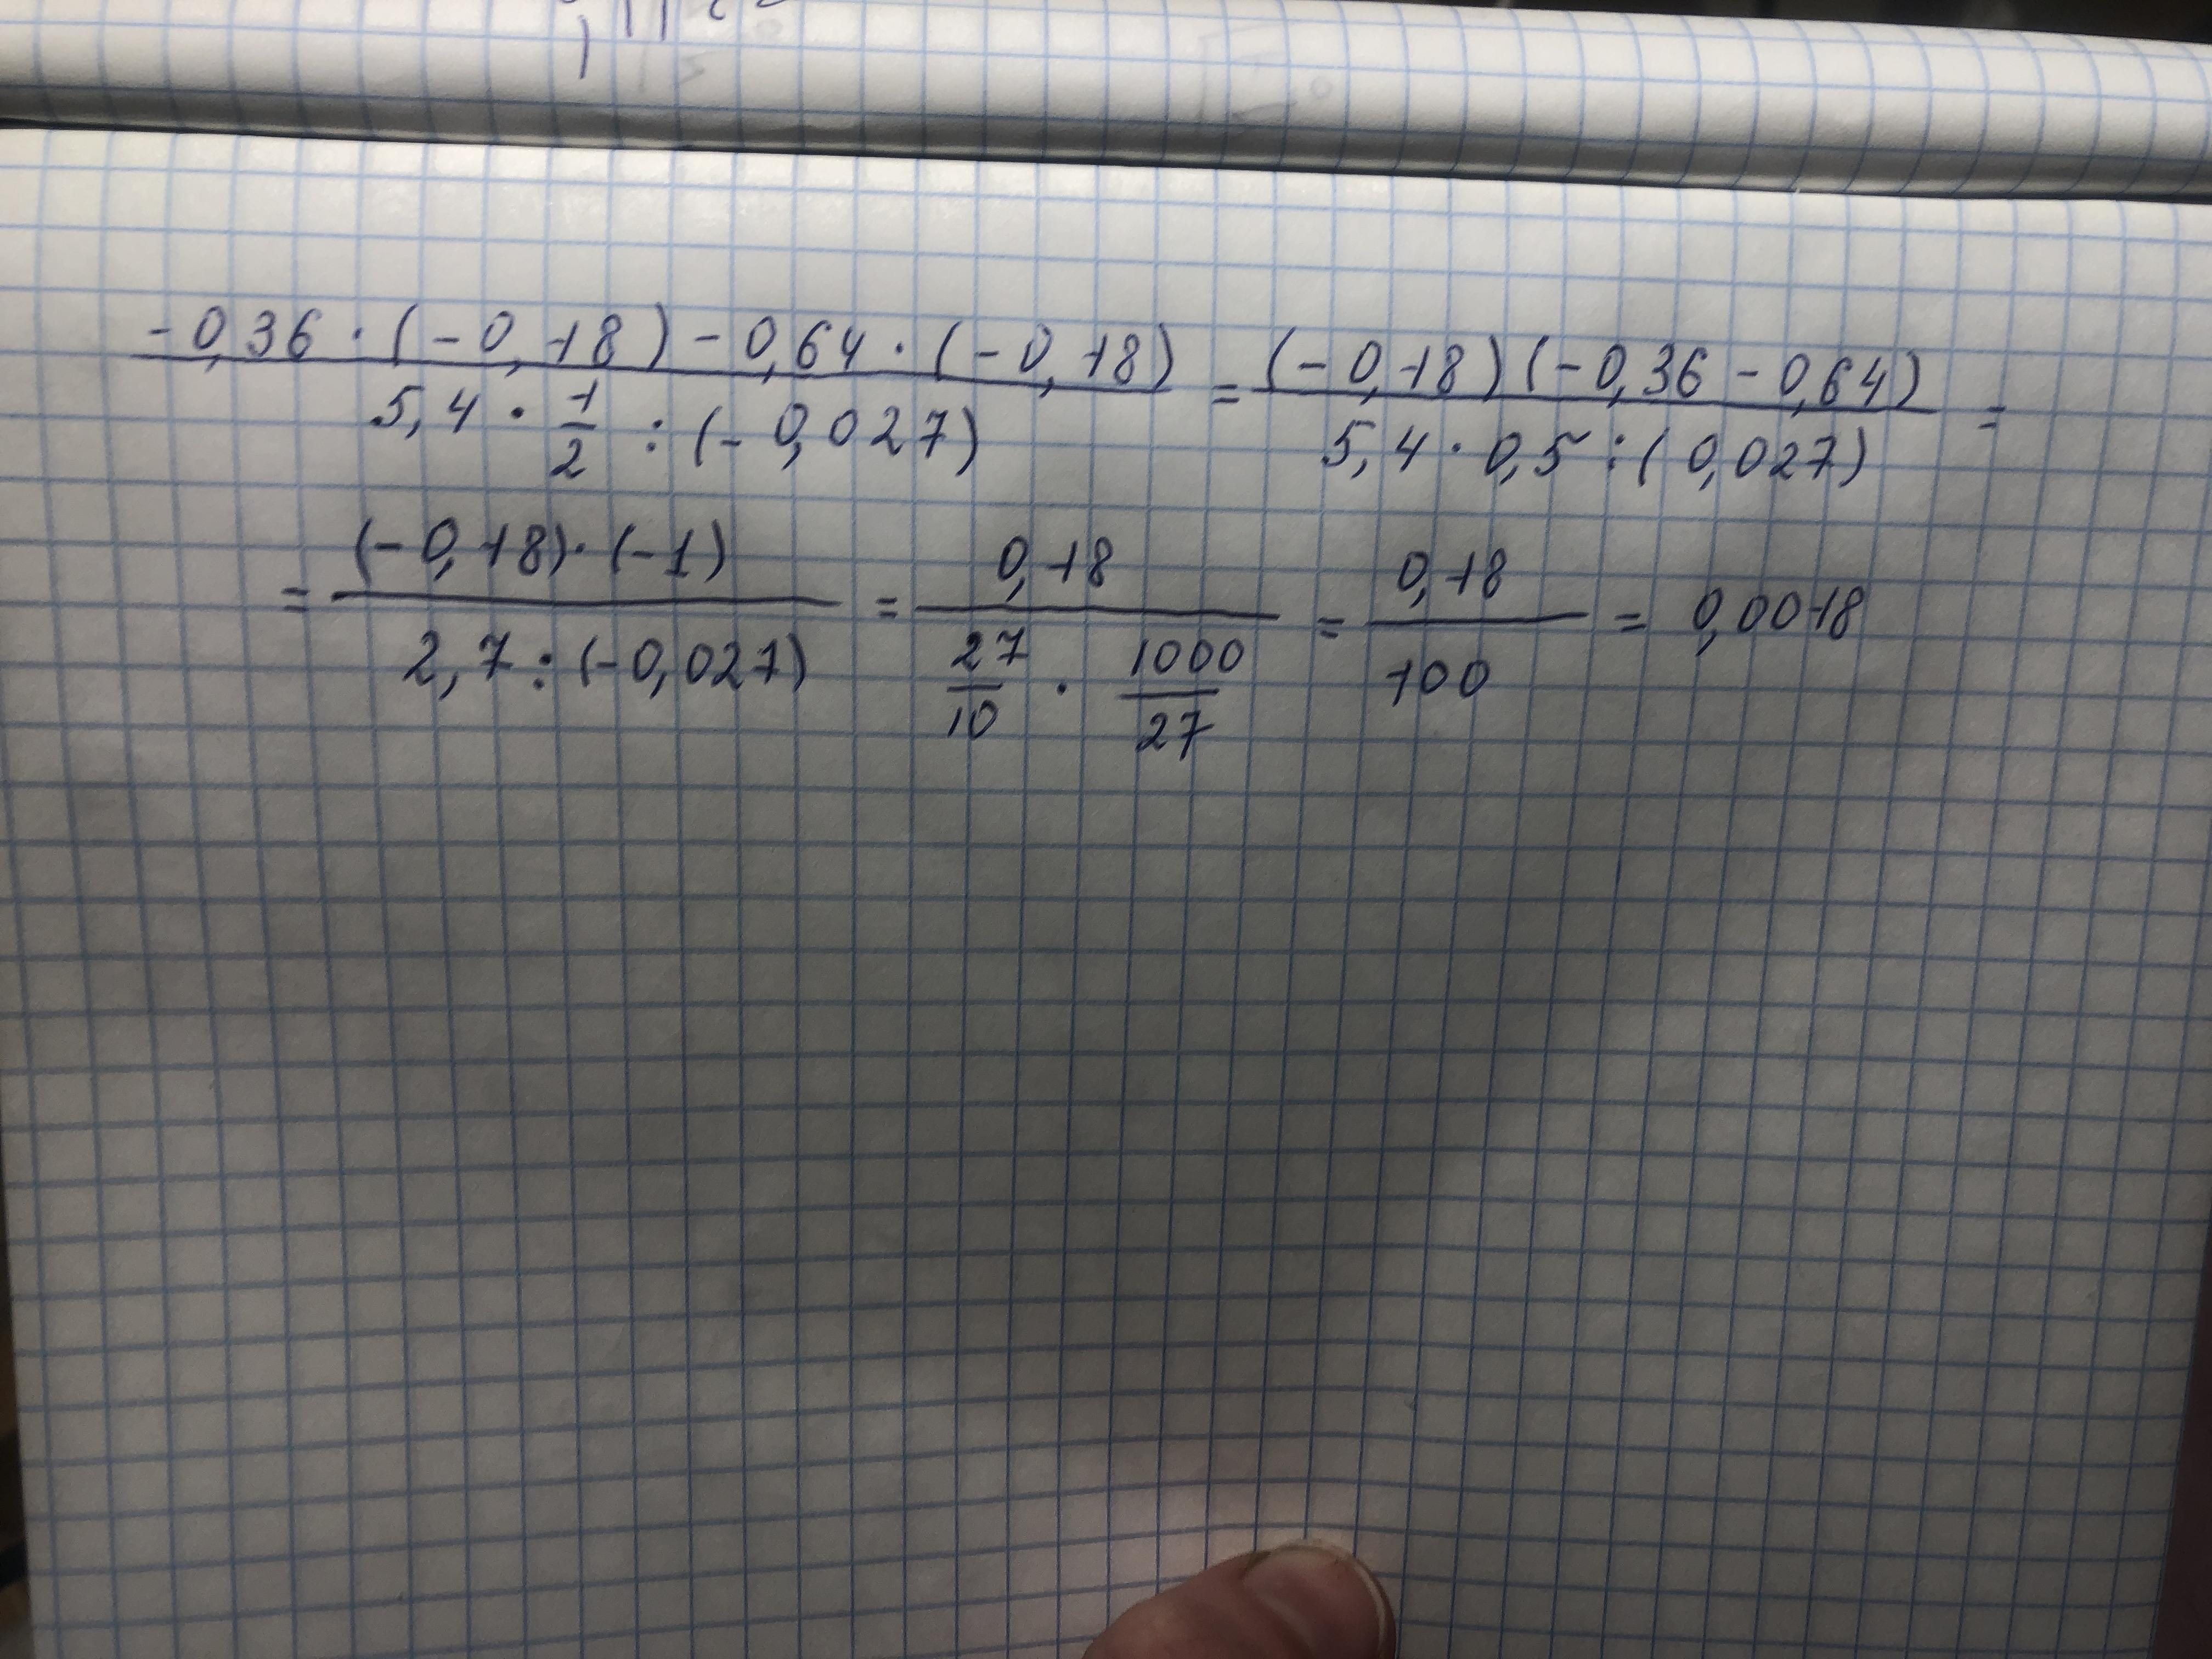 -0,36 · (-0,18) - 0,64 · (-0,18) / 5,4 · 1/2 : (-0,027) = (-0,18)(-0,36 - 0,64) / 5,4 · 0,5 : (0,027) =
= (-0,18) · (-1) / 2,7 : (-0,027) = 0,18 / 27/10 · 1000/27 = 0,18 / 100 = 0,0018